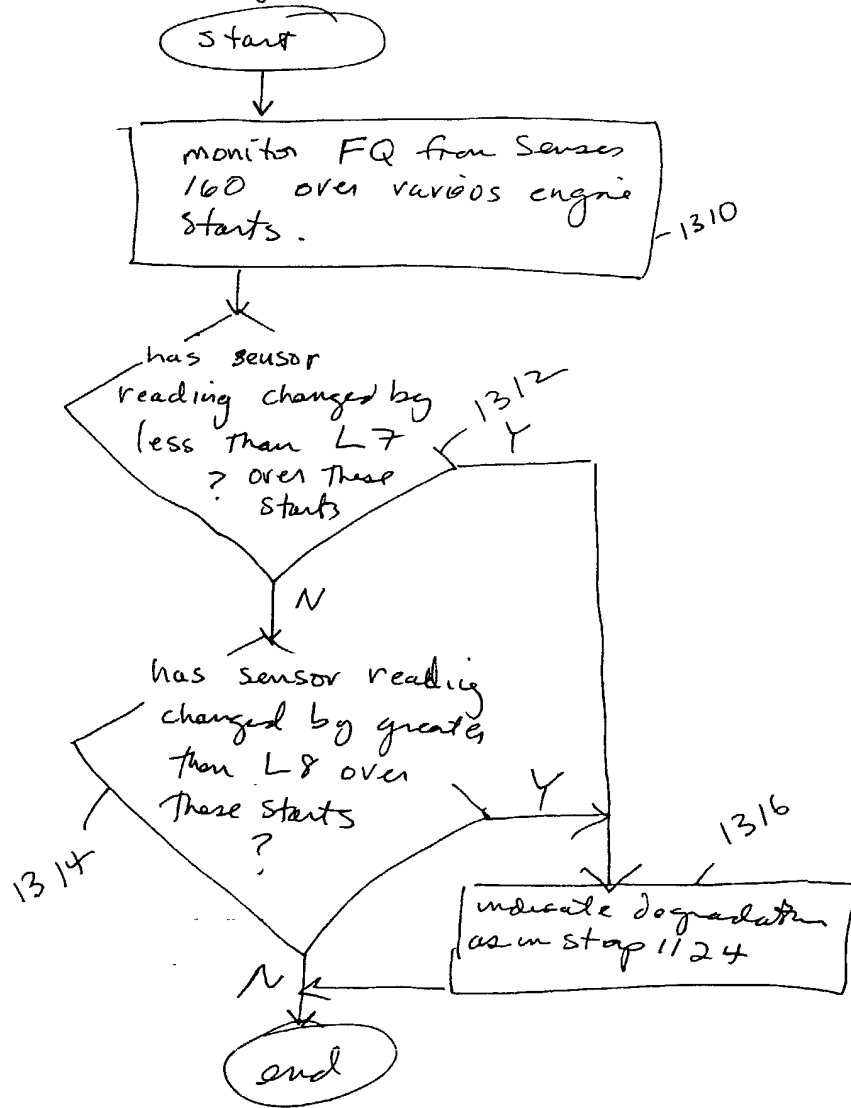 start
monitor FQ from Senses
160 over varios engine
starts.
1310
has sensor
reading changed by
less than L7
? over these
starts
1312
Y
N
has sensor reading
changed by greater
than L8 over
these starts
?
1314
Y
1316
indicate degradation
as in step 1124
N
end